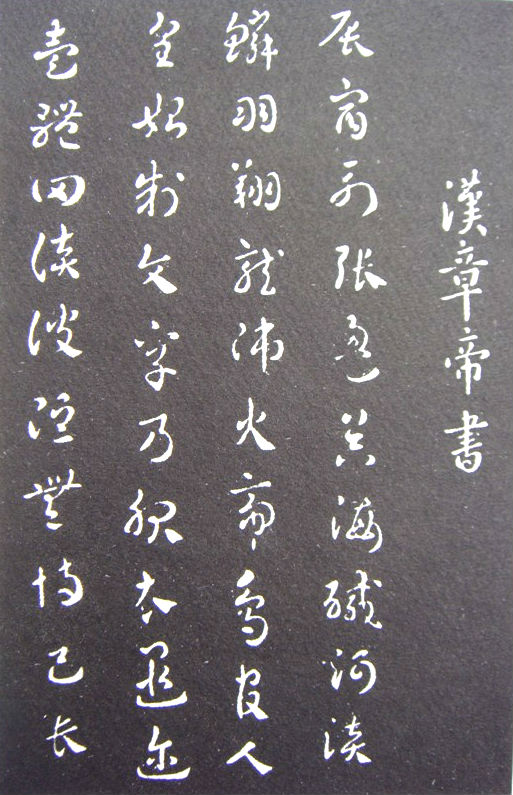 漢章帝書
辰宿列張盈昃海鹹河淡
鱗羽翔龍師火帝鳥官人
皇始制文字乃服衣遐邇
壹體罔談彼短靡恃己長